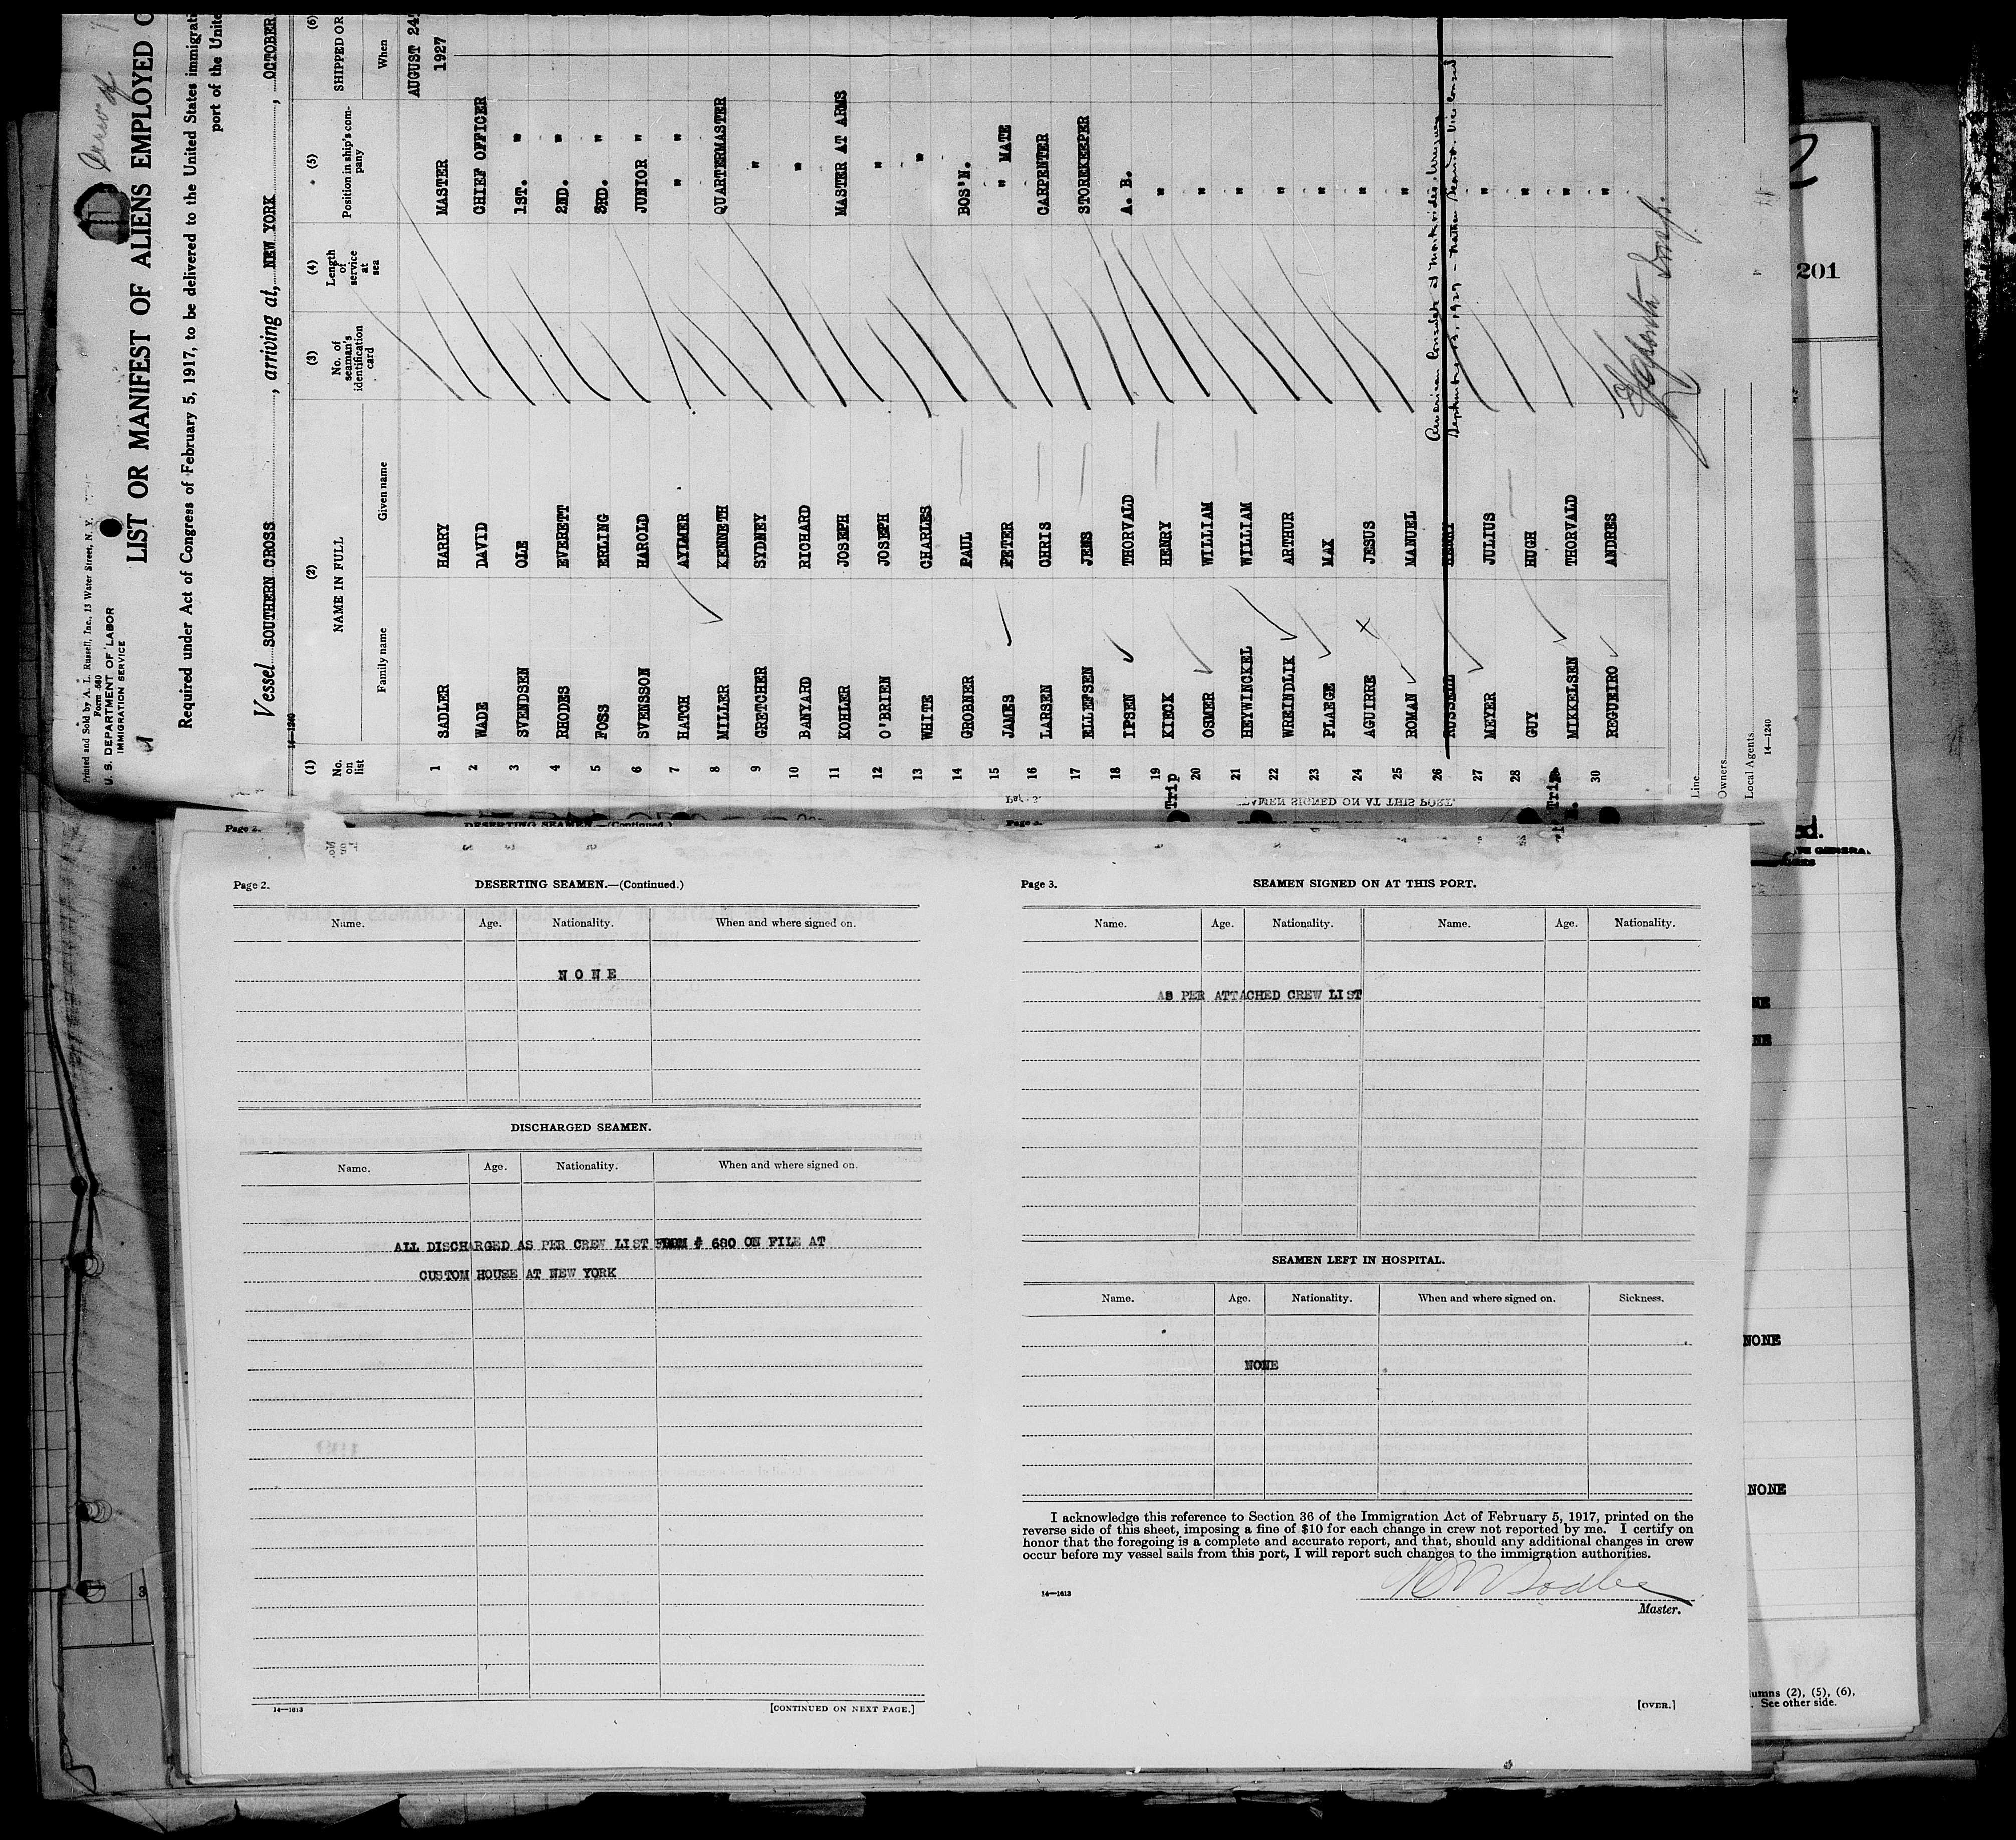 Printed and Sold by A. L. Russell, Inc., 13 Water Street, N. Y.
Form 680
U. S. DEPARTMENT OF LABOR
IMMIGRATION SERVICE
Crew of
LIST OR MANIFEST OF ALIENS EMPLOYED O
Required under Act of Congress of February 5, 1917, to be delivered to the United States immigrati
port of the Unite
Vessel SOUTHERN CROSS, arriving at, NEW YORK, OCTOBER
14—1240
(1) (2) (3) (4) (5) (6)
No. on list NAME IN FULL No. of seaman's identification card Length of service at sea Position in ship's company SHIPPED OR
Family name Given name When
1 SADLER HARRY MASTER AUGUST 24 1927
2 WADE DAVID CHIEF OFFICER
3 SVENDSEN OLE 1ST. "
4 RHODES EVERETT 2ND. "
5 FOSS ERLING 3RD. "
6 SVENSSON HAROLD JUNIOR "
7 HATCH AYLMER " "
8 MILLER KENNETH QUARTERMASTER
9 GRETCHER SYDNEY "
10 BANYARD RICHARD "
11 KOHLER JOSEPH MASTER AT ARMS
12 O'BRIEN JOSEPH "
13 WHITE CHARLES "
14 GROBNER PAUL BOS'N.
15 JAMES PETER " MATE
16 LARSEN CHRIS CARPENTER
17 ELLEFSEN JENS STOREKEEPER
18 IPSEN THORVALD A. B.
19 KIECK HENRY "
20 OSMER WILLIAM "
21 HEYWINCKEL WILLIAM "
22 WREINDLIK ARTHUR "
23 PLAEGE MAX "
24 AGUIRRE JESUS "
25 ROMAN MANUEL "
American Consulate at Montevideo, Uruguay
26 RUSSELL HENRY
September 13, 1927 - Vice Consul
27 MEYER JULIUS "
28 GUY HUGH "
MIKKELSEN THORVALD "
30 REGUEIRO ANDRES "
Line
Owners
Local Agents
14—1240
Trip
Trip
SEAMEN SIGNED ON AT THIS PORT
Page 2.
DESERTING SEAMEN.—(Continued.)
Page 3.
Page 2.
DESERTING SEAMEN.—(Continued.)
Name. Age. Nationality. When and where signed on.
NONE
DISCHARGED SEAMEN.
Name. Age. Nationality. When and where signed on.
ALL DISCHARGED AS PER CREW LIST FORM # 680 ON FILE AT
CUSTOM HOUSE AT NEW YORK
14—1613
[CONTINUED ON NEXT PAGE.]
Page 3.
SEAMEN SIGNED ON AT THIS PORT.
Name. Age. Nationality. Name. Age. Nationality.
AS PER ATTACHED CREW LIST
SEAMEN LEFT IN HOSPITAL.
Name. Age. Nationality. When and where signed on. Sickness.
NONE
I acknowledge this reference to Section 36 of the Immigration Act of February 5, 1917, printed on the
reverse side of this sheet, imposing a fine of $10 for each change in crew not reported by me. I certify on
honor that the foregoing is a complete and accurate report, and that, should any additional changes in crew
occur before my vessel sails from this port, I will report such changes to the immigration authorities.
14—1613
Master.
[OVER.]
201
NE
NE
NONE
NONE
lumns (2), (5), (6),
. See other side.
3